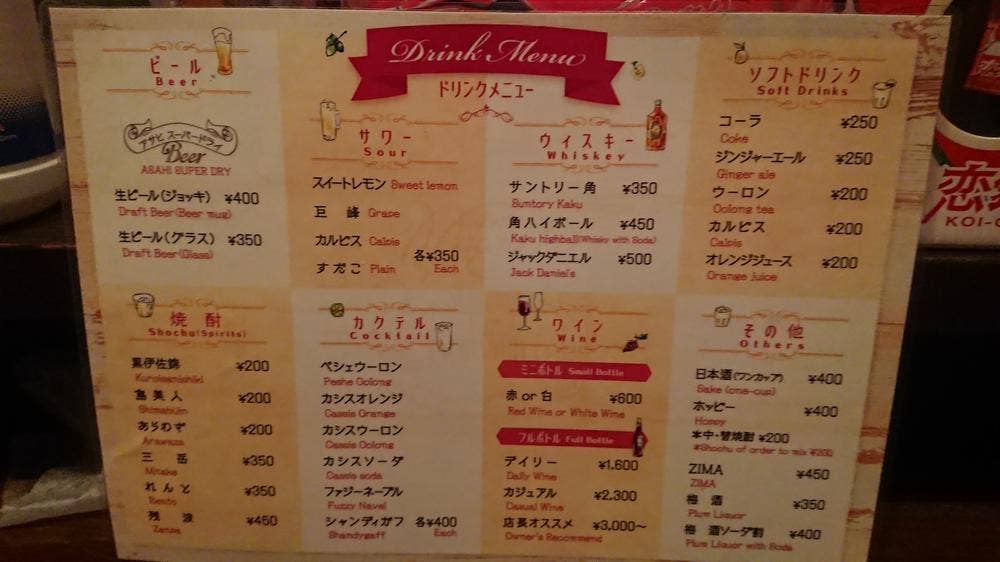 Drink Menu
ドリンクメニュー
ビール
Beer
アサヒ スーパードライ
Beer
ASAHI SUPER DRY
生ビール(ジョッキ) ¥400
Draft Beer(Beer mug)
生ビール(グラス) ¥350
Draft Beer(Glass)
サワー
Sour
スイートレモン Sweet lemon
巨峰 Grape
カルピス Calpis
各¥350
すだこ Plain Each
ウィスキー
Whiskey
サントリー角 ¥350
Suntory Kaku
角ハイボール ¥450
Kaku highball(Whisky with Soda)
ジャックダニエル ¥500
Jack Daniel's
ソフトドリンク
Soft Drinks
コーラ ¥250
Coke
ジンジャーエール ¥250
Ginger ale
ウーロン ¥200
Oolong tea
カルピス ¥200
Calpis
オレンジジュース ¥200
Orange juice
焼酎
Shochu(Spirits)
黒伊佐錦 ¥200
Kuroisanishiki
島美人 ¥200
Shimabijin
あらわず ¥200
Arawazu
三岳 ¥350
Mitake
れんと ¥350
Rento
残波 ¥450
Zanpa
カクテル
Cocktail
ペシェウーロン
Peshe Oolong
カシスオレンジ
Cassis Orange
カシスウーロン
Cassis Oolong
カシスソーダ
Cassis soda
ファジーネーブル
Fuzzy Navel
シャンディガフ 各¥400
Shandygaff Each
ワイン
Wine
ミニボトル Small Bottle
赤or白 ¥600
Red Wine or White Wine
フルボトル Full Bottle
デイリー ¥1,600
Daily Wine
カジュアル ¥2,300
Casual Wine
店長オススメ ¥3,000～
Owner's Recommend
その他
Others
日本酒(ワンカップ) ¥400
Sake (one-cup)
ホッピー ¥400
Hoppy
※中・替焼酎 ¥200
※Shochu of order to mix ¥200
ZIMA ¥450
ZIMA
梅酒 ¥350
Plum Liquor
梅酒ソーダ割 ¥400
Plum Liquor with Soda
恋
KOI-